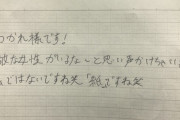 つかれ様です!
敵な女性がいるな〜と思い声かけちゃい
ではないですね笑 「 」ですね笑